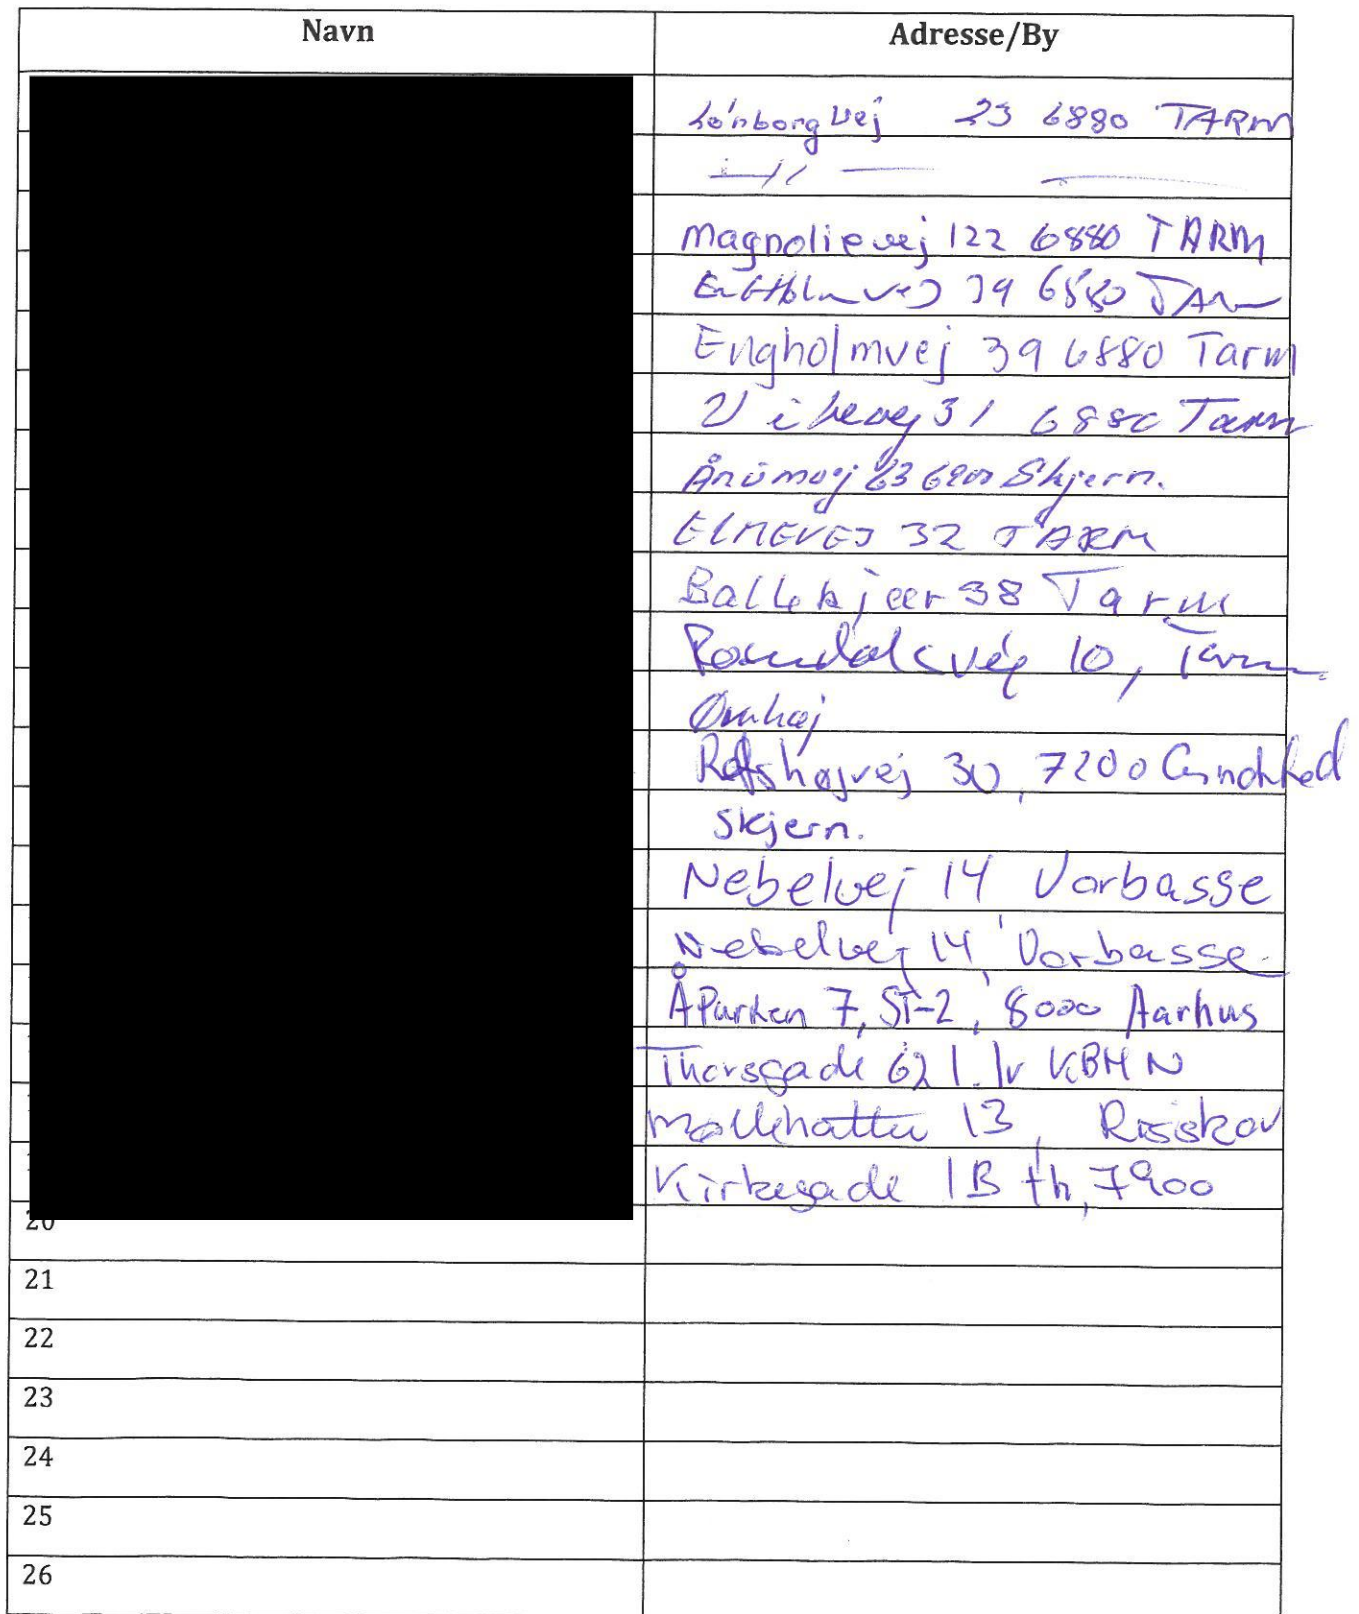 Navn Adresse/By
Lönborgvej 23 6880 TARM
—//—
Magnolievej 122 6880 TARM
39 6880 TARM
Engholmvej 39 6880 Tarm
Vibevej 31 6880 Tarm
Ånumvej 6900 Skjern.
ELMEVEJ 32 TARM
Ballekjær 38 Tarm
Rosendalsvej 10, Tarm
Ørnhøj
Refshøjvej 30, 7200 Grindsted
Skjern.
Nebelvej 14 Vorbasse
Nebelvej 14, Vorbasse.
ÅParken 7, ST-2, 8000 Aarhus
Thorsgade 62 1. tv KBH N
13, Risskov
Kirkegade 1B th, 7900
20
21
22
23
24
25
26